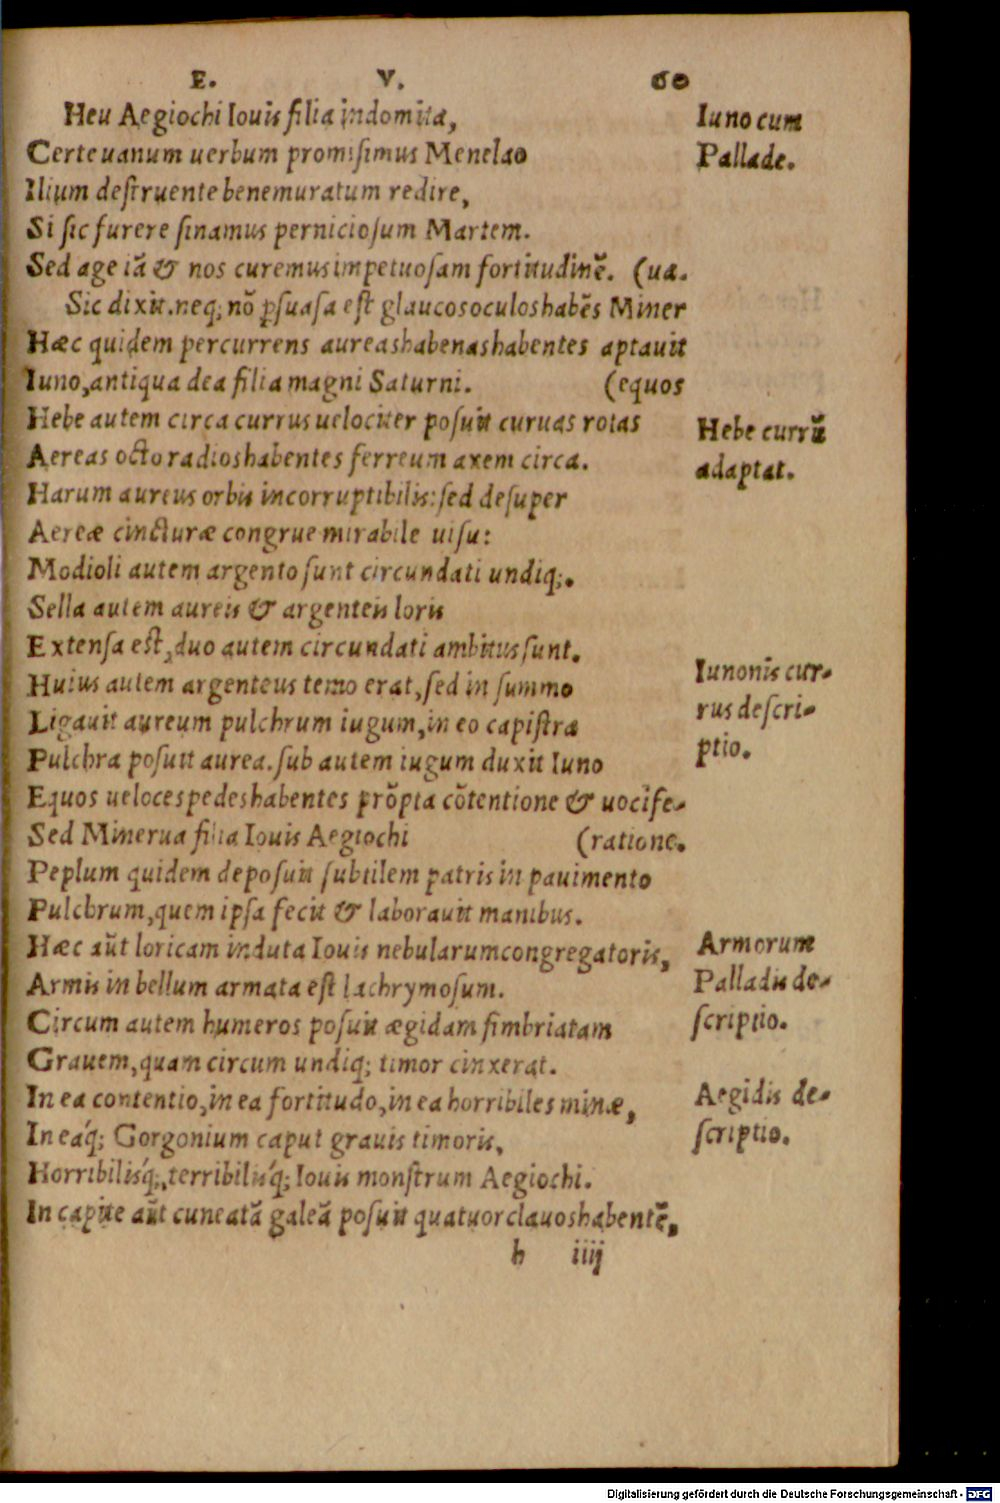 E. V. 60
Heu Aegiochi Iouis filia indomita,
Certe uanum uerbum promisimus Menelao
Ilium destruente benemuratum redire,
Si sic furere sinamus perniciosum Martem.
Sed age iā & nos curemus impetuosam fortitudinē. (ua.
Sic dixit. neq; nō p̱suasa est glaucosoculoshabēs Miner
Hæc quidem percurrens aureashabenashabentes aptauit
Iuno, antiqua dea filia magni Saturni. (equos
Hebe autem circa currus uelociter posuit curuas rotas
Aereas octo radioshabentes ferreum axem circa.
Harum aureus orbis incorruptibilis: sed desuper
Aereæ cincturæ congrue mirabile uisu:
Modioli autem argento sunt circundati undiq;.
Sella autem aureis & argenteis loris
Extensa est, duo autem circundati ambitus sunt.
Huius autem argenteus temo erat, sed in summo
Ligauit aureum pulchrum iugum, in eo capistra
Pulchra posuit aurea. sub autem iugum duxit Iuno
Equos uelocespedeshabentes prōpta cōtentione & uocife-
Sed Minerua filia Iouis Aegiochi (ratione.
Peplum quidem deposuit subtilem patris in pauimento
Pulchrum, quem ipsa fecit & laborauit manibus.
Hæc aūt loricam induta Iouis nebularumcongregatoris,
Armis in bellum armata est lachrymosum.
Circum autem humeros posuit ægidam fimbriatam
Grauem, quam circum undiq; timor cinxerat.
In ea contentio, in ea fortitudo, in ea horribiles minæ,
In eaq́; Gorgonium caput grauis timoris,
Horribilisq́;, terribilisq́; Iouis monstrum Aegiochi.
In capite aūt cuneatā galeā posuit quatuorclauoshabentē,
h iiij
Iuno cum
Pallade.
Hebe currū
adaptat.
Iunonis cur-
rus descri-
ptio.
Armorum
Palladis de-
scriptio.
Aegidis de-
scriptio.
Digitalisierung gefördert durch die Deutsche Forschungsgemeinschaft - DFG